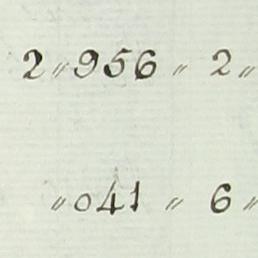 2〃956 〃 2〃
〃041 〃 6〃